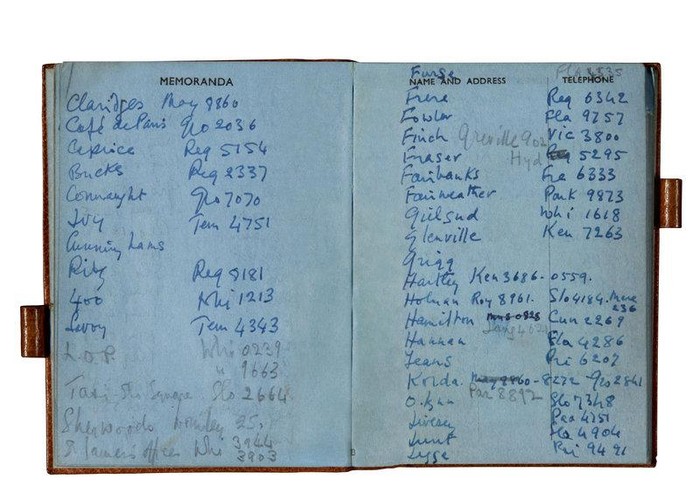 MEMORANDA
Claridges May 8860
Café de Paris Gro 2036
Caprice Reg 5154
Bucks Reg 2337
Connaught Gro 7070
Ivy Tem 4751
Cunninghams
Ritz Reg 8181
400 Whi 1213
Savoy Tem 4343
Whi 0239
" 1663
Taxi Slo Square Slo 2664
Sherwoods 25.
St James's Office Whi 3944
3903
NAME AND ADDRESS TELEPHONE
Furse Fla 8535
Frere Reg 6342
Fowler Fla 9757
Finch Greville 902 Vic 3800
Fraser Hyd 5295
Fairbanks Fre 6333
Fairweather Park 9873
Guilsud Whi 1618
Glenville Ken 7263
Grigg
Hartley Ken 3686 - 0559.
Holman Roy 8961. Slo 4184.
236
Hamilton Cun 2269
Hannan Fla 4286
Jeans Pri 6207
Korda. - 8272 - Gro 2841
Par 8892
Slo 7348
4751
Lunt Fla 4904
Pri 9491